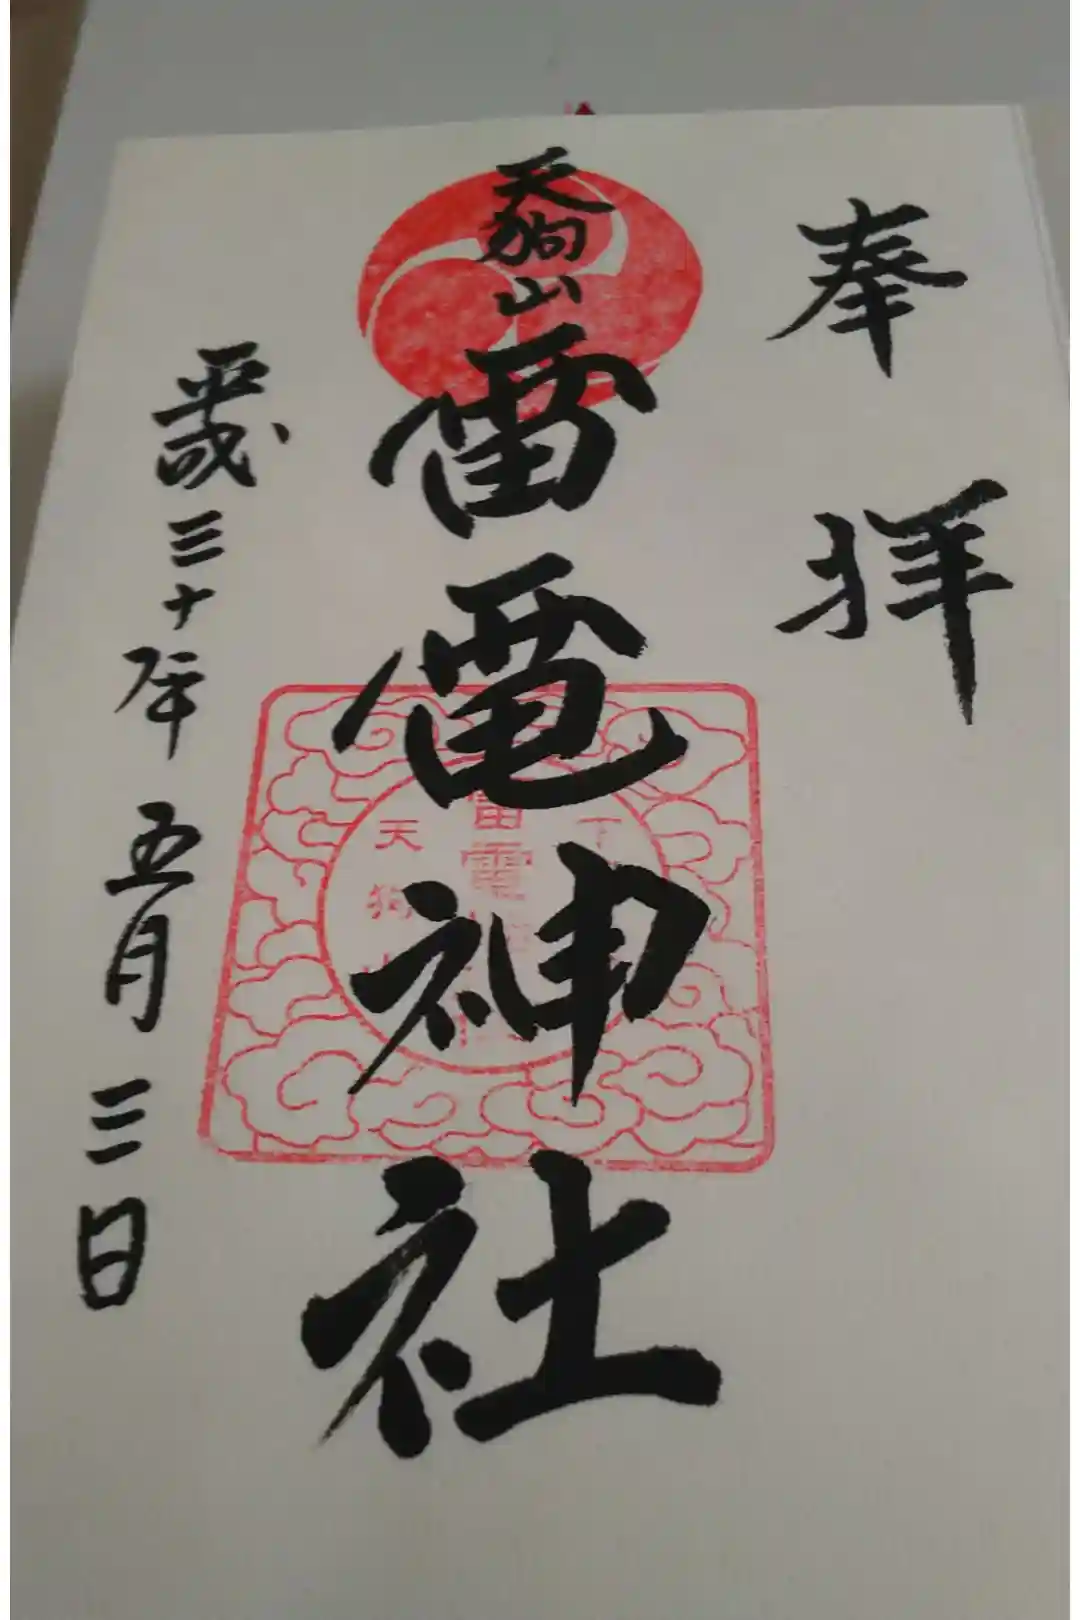 奉拝
天狗山
雷電神社
平成三十年五月三日
雷電
天狗